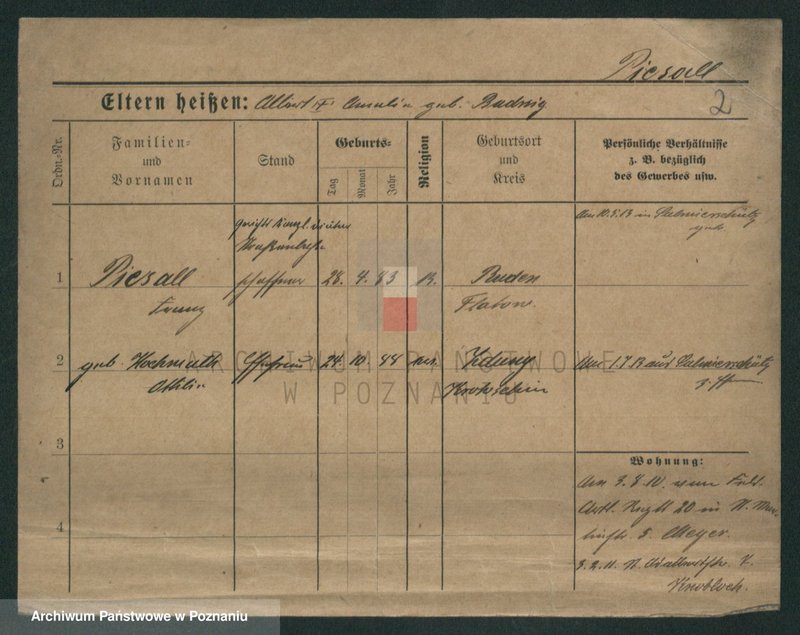 Piesall
2
Eltern heißen: Albert u. Amalia geb. Radwig
Ordn.-Nr.
Familien- und Vornamen
Stand
Geburts-
Tag
Monat
Jahr
Religion
Geburtsort und Kreis
Persönliche Verhältnisse z. B. bezüglich des Gewerbes usw.
Am 10.5.13 in
geb.
1
Piesall
Franz
Straßenbahn
schaffner
28. 4. 83
R.
Buden
Flatow
2
geb. Hochmuth
Ottilie
Ehefrau
24. 10. 88
Zduny
Krotoschin
Am 1.7.13 aus
3
Wohnung:
Am 3. 8. 10. vom Feld.
Artl. Regt 20 in
5 Meyer.
4
3. 2. 11.
Knobloch.
ARCHIWUM PAŃSTWOWE
W POZNANIU
Archiwum Państwowe w Poznaniu